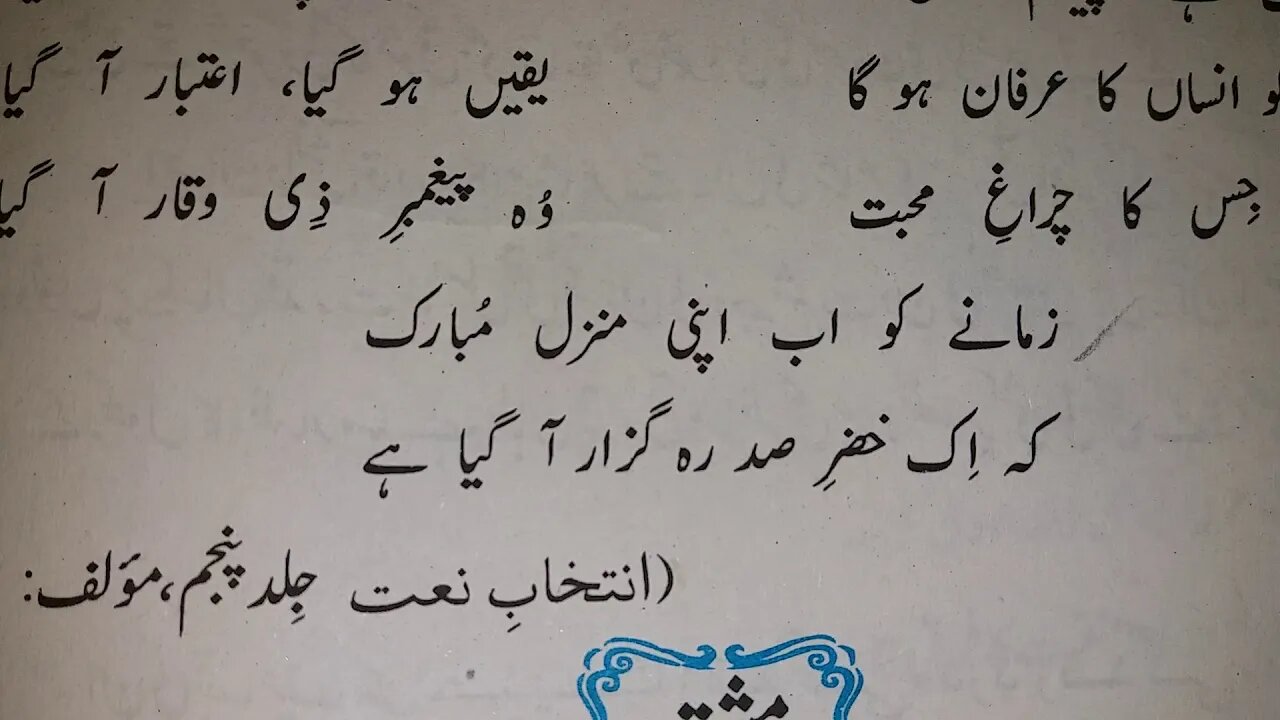 کو انساں کا عرفان ہو گا یقیں ہو گیا، اعتبار آ گیا
جِس کا چراغِ محبت وُہ پیغمبرِ ذِی وقار آ گیا
زمانے کو اب اپنی منزل مُبارک
کہ اِک خضرِ صد رہ گزار آ گیا ہے
(انتخابِ نعت جِلد پنجم، مؤلف:
مشق